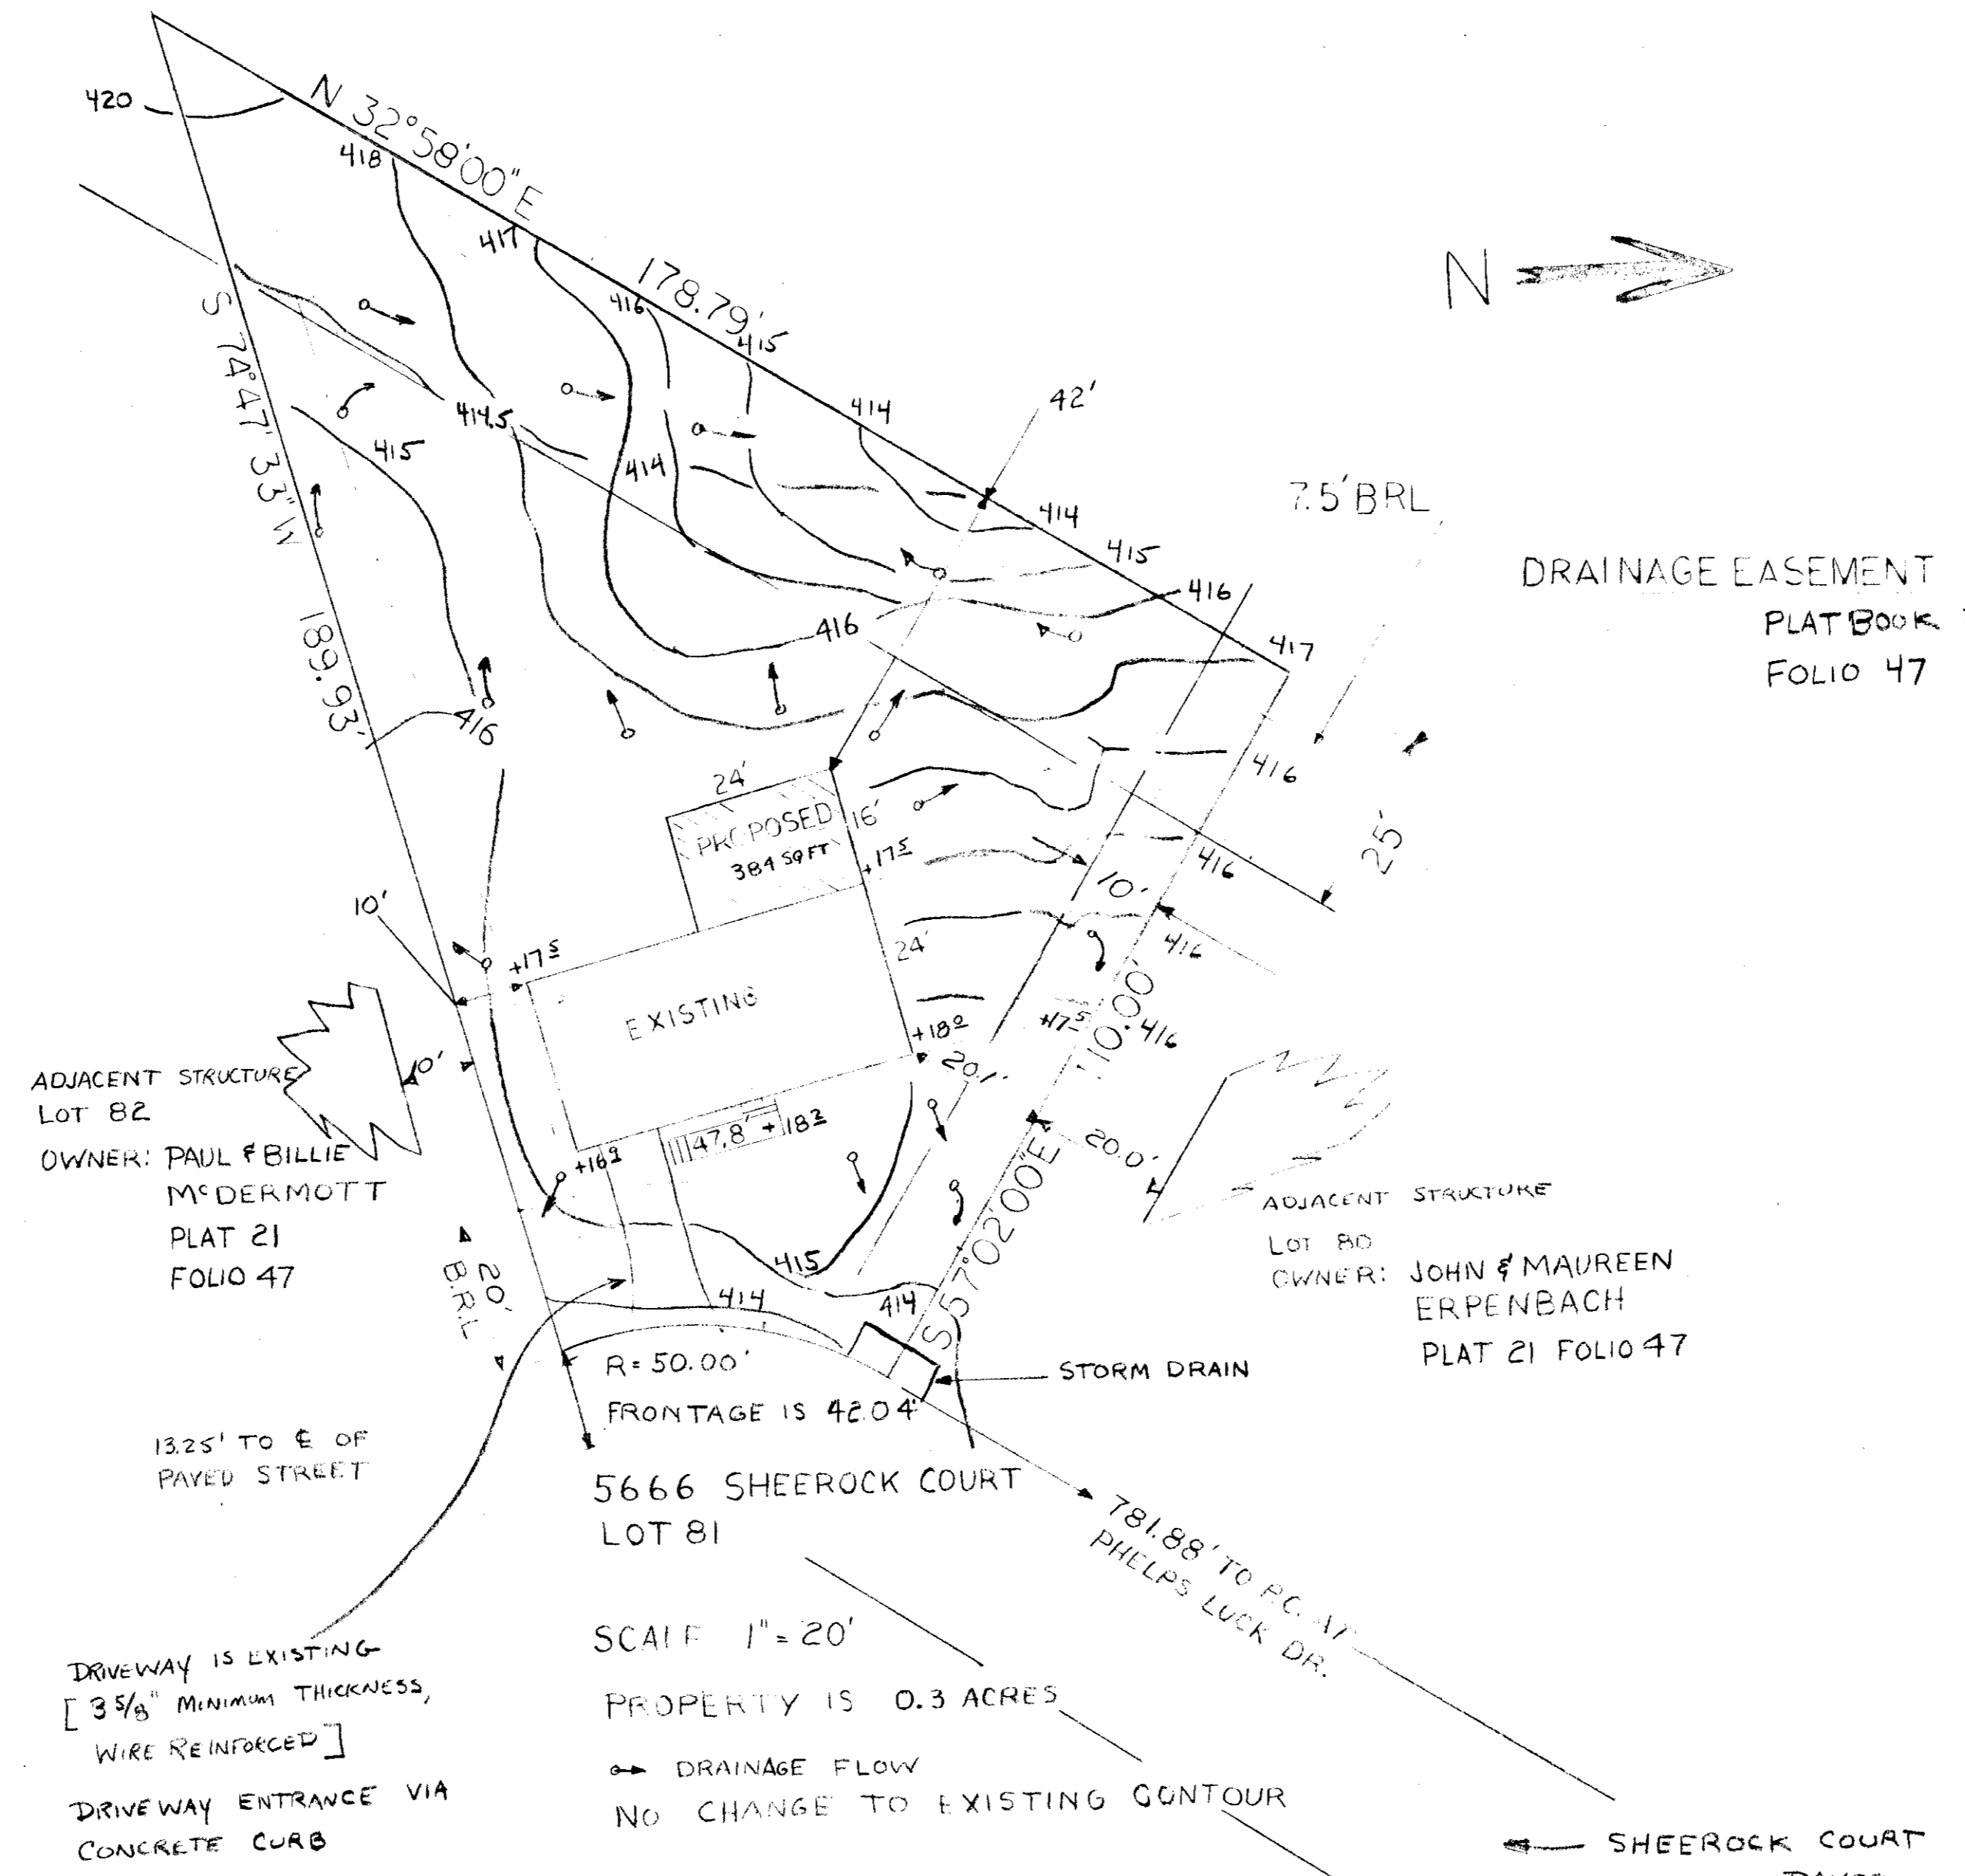 420
N 32°58'00" E
418
417
178.79'
416
415
414
42'
N
7.5' BRL
DRAINAGE EASEMENT
PLAT BOOK
FOLIO 47
S 74°47'33" W
414.5
415
414
414
415
416
417
416
189.93'
416
416
25'
24'
PROPOSED
16'
384 SQ FT
+17⁵
416
10'
10'
24'
416
+17⁵
EXISTING
+18⁰
+17⁵
416
110.00'
20.1'
10'
ADJACENT STRUCTURE
LOT 82
OWNER: PAUL & BILLIE
McDERMOTT
PLAT 21
FOLIO 47
47.8'
+18²
20.0'
S 57°02'00" E
ADJACENT STRUCTURE
LOT 80
OWNER: JOHN & MAUREEN
ERPENBACH
PLAT 21 FOLIO 47
20'
B.R.L
415
414
414
R=50.00'
STORM DRAIN
FRONTAGE IS 42.04'
13.25' TO ℄ OF
PAVED STREET
5666 SHEEROCK COURT
LOT 81
781.88' TO P.C. AT
PHELPS LUCK DR.
SCALE 1"=20'
PROPERTY IS 0.3 ACRES
DRAINAGE FLOW
NO CHANGE TO EXISTING CONTOUR
DRIVEWAY IS EXISTING
[3 5/8" MINIMUM THICKNESS,
WIRE REINFORCED]
DRIVEWAY ENTRANCE VIA
CONCRETE CURB
SHEEROCK COURT